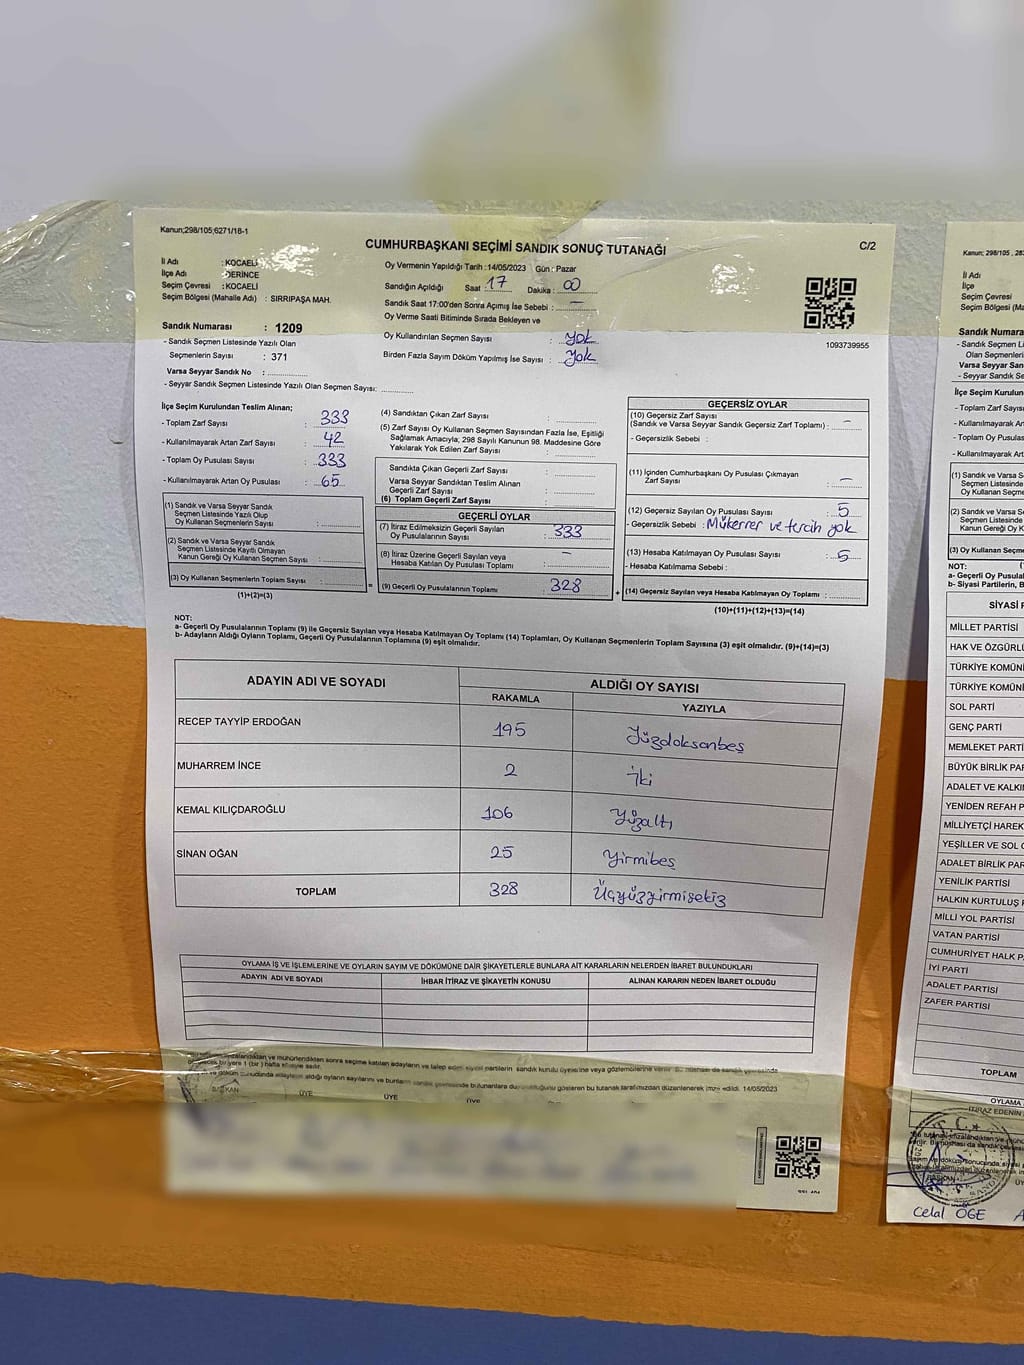 Kanun;298/105;6271/18-1
CUMHURBAŞKANI SEÇİMİ SANDIK SONUÇ TUTANAĞI
C/2
İl Adı : KOCAELİ
İlçe Adı : DERİNCE
Seçim Çevresi : KOCAELİ
Seçim Bölgesi (Mahalle Adı) : SIRRIPAŞA MAH.
Oy Vermenin Yapıldığı Tarih :14/05/2023 Gün : Pazar
Sandığın Açıldığı Saat : 17 Dakika : 00
Sandık Saat 17:00'den Sonra Açımış İse Sebebi : —
Oy Verme Saati Bitiminde Sırada Bekleyen ve
Oy Kullandırılan Seçmen Sayısı : Yok
Birden Fazla Sayım Döküm Yapılmış İse Sayısı : Yok
1093739955
Sandık Numarası : 1209
- Sandık Seçmen Listesinde Yazılı Olan
Seçmenlerin Sayısı : 371
Varsa Seyyar Sandık No :
- Seyyar Sandık Seçmen Listesinde Yazılı Olan Seçmen Sayısı:
İlçe Seçim Kurulundan Teslim Alınan;
- Toplam Zarf Sayısı : 333
- Kullanılmayarak Artan Zarf Sayısı : 42
- Toplam Oy Pusulası Sayısı : 333
- Kullanılmayarak Artan Oy Pusulası : 65
(1) Sandık ve Varsa Seyyar Sandık
Seçmen Listesinde Yazılı Olup
Oy Kullanan Seçmenlerin Sayısı :
(2) Sandık ve Varsa Seyyar Sandık
Seçmen Listesinde Kayıtlı Olmayan
Kanun Gereği Oy Kullanan Seçmen Sayısı :
(3) Oy Kullanan Seçmenlerin Toplam Sayısı :
(1)+(2)=(3)
(4) Sandıktan Çıkan Zarf Sayısı :
(5) Zarf Sayısı Oy Kullanan Seçmen Sayısından Fazla İse, Eşitliği
Sağlamak Amacıyla; 298 Sayılı Kanunun 98. Maddesine Göre
Yakılarak Yok Edilen Zarf Sayısı :
Sandıkta Çıkan Geçerli Zarf Sayısı :
Varsa Seyyar Sandıktan Teslim Alınan
Geçerli Zarf Sayısı :
(6) Toplam Geçerli Zarf Sayısı :
GEÇERLİ OYLAR
(7) İtiraz Edilmeksizin Geçerli Sayılan
Oy Pusulalarının Sayısı : 333
(8) İtiraz Üzerine Geçerli Sayılan veya
Hesaba Katılan Oy Pusulası Toplamı : —
= (9) Geçerli Oy Pusulalarının Toplamı : 328 +
GEÇERSİZ OYLAR
(10) Geçersiz Zarf Sayısı
(Sandık ve Varsa Seyyar Sandık Geçersiz Zarf Toplamı) : —
- Geçersizlik Sebebi :
(11) İçinden Cumhurbaşkanı Oy Pusulası Çıkmayan
Zarf Sayısı : —
(12) Geçersiz Sayılan Oy Pusulası Sayısı : 5
- Geçersizlik Sebebi : Mükerrer ve tercih yok
(13) Hesaba Katılmayan Oy Pusulası Sayısı : 5
- Hesaba Katılmama Sebebi :
(14) Geçersiz Sayılan veya Hesaba Katılmayan Oy Toplamı :
(10)+(11)+(12)+(13)=(14)
NOT:
a- Geçerli Oy Pusulaları Toplamı (9) ile Geçersiz Sayılan veya Hesaba Katılmayan Oy Toplamı (14) Toplamları, Oy Kullanan Seçmenlerin Toplam Sayısına (3) eşit olmalıdır. (9)+(14)=(3)
b- Adayların Aldığı Oyların Toplamı, Geçerli Oy Pusulalarının Toplamına (9) eşit olmalıdır.
ADAYIN ADI VE SOYADI ALDIĞI OY SAYISI
RAKAMLA YAZIYLA
RECEP TAYYİP ERDOĞAN 195 Yüzdoksanbeş
MUHARREM İNCE 2 İki
KEMAL KILIÇDAROĞLU 106 Yüzaltı
SİNAN OĞAN 25 Yirmibeş
TOPLAM 328 Üçyüzyirmisekiz
OYLAMA İŞ VE İŞLEMLERİNE VE OYLARIN SAYIM VE DÖKÜMÜNE DAİR ŞİKAYETLERLE BUNLARA AİT KARARLARIN NELERDEN İBARET BULUNDUKLARI
ADAYIN ADI VE SOYADI İHBAR İTİRAZ VE ŞİKAYETİN KONUSU ALINAN KARARIN NEDEN İBARET OLDUĞU
imzalandıktan ve mühürlendikten sonra seçime katılan adayların ve talep eden siyasi partilerin sandık kurulu üyelerine veya gözlemcilerine verilir.
bir yere 1 (bir) hafta süreyle asılır.
ve döküm sonucunda adayların aldığı oyların sayılarını ve bunların bulunanlara duyurulduğunu gösteren bu tutanak tarafımızdan düzenlenerek imza edildi. 14/05/2023
BAŞKAN ÜYE ÜYE ÜYE
Kanun; 298/105
İl Adı
İlçe
Seçim Çevresi
Seçim Bölgesi
Sandık Numarası
- Sandık Seçmen
Olan Seçmenlerin
Varsa Seyyar
- Seyyar Sandık
İlçe Seçim
- Toplam Zarf
- Kullanılmayarak
- Toplam Oy Pusulası
- Kullanılmayarak
(1) Sandık ve Varsa
Seçmen Listesinde
Oy Kullanan
(2) Sandık ve Varsa
Seçmen Listesinde
Kanun Gereği
(3) Oy Kullanan
NOT:
a- Geçerli Oy
b- Siyasi Partilerin,
SİYASİ
MİLLET PARTİSİ
HAK VE
TÜRKİYE
TÜRKİYE
SOL PARTİ
GENÇ PARTİ
MEMLEKET
BÜYÜK BİRLİK
ADALET VE
YENİDEN REFAH
MİLLİYETÇİ
YEŞİLLER VE SOL
ADALET BİRLİK
YENİLİK PARTİSİ
HALKIN KURTULUŞ
MİLLİ YOL PARTİSİ
VATAN PARTİSİ
CUMHURİYET HALK
İYİ PARTİ
ADALET PARTİSİ
ZAFER PARTİSİ
TOPLAM
OYLAMA
İTİRAZ EDENİN
T.C.
Celal ÖGE